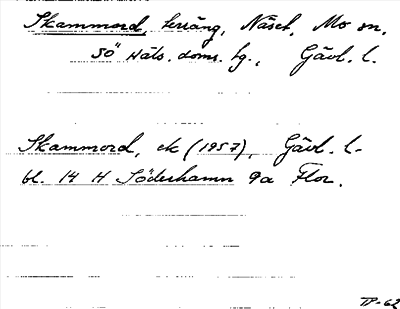 Skammord, terräng, Näset, Mo sn,
SÖ Häls. doms. tg., Gävl. l.
Skammord, ek (1957), Gävl. l.
bl. 14 H Söderhamn 9a Flor.
TP-62